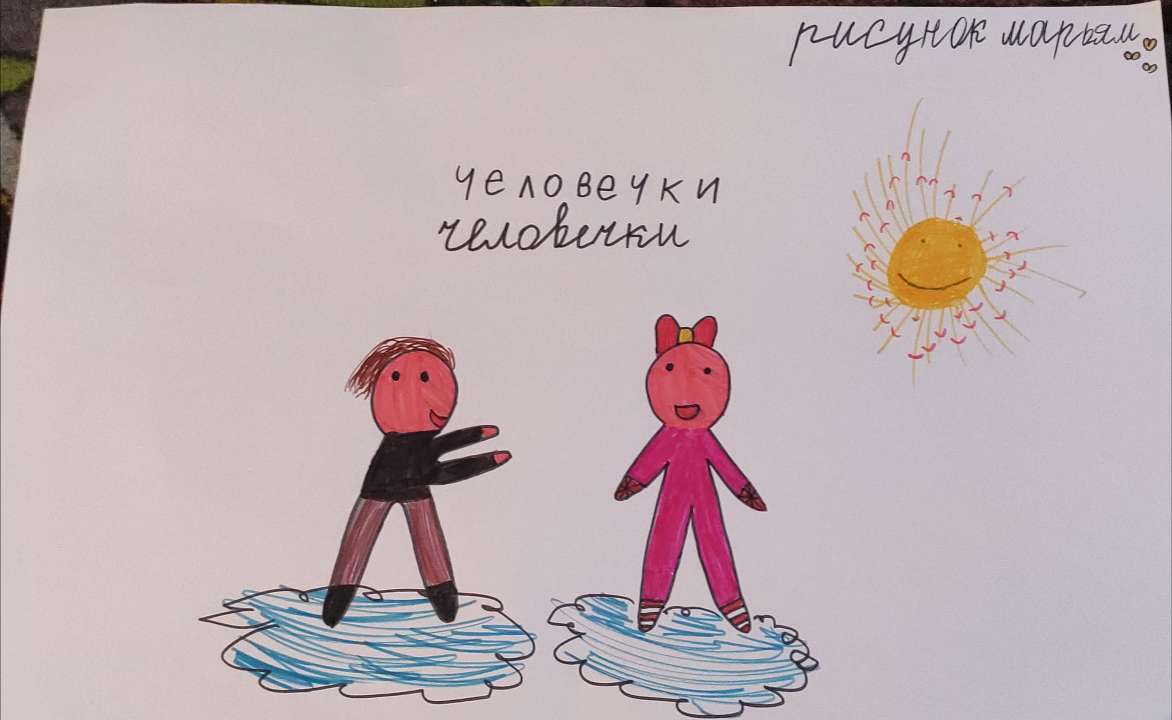 рисунок марьям
человечки
человечки